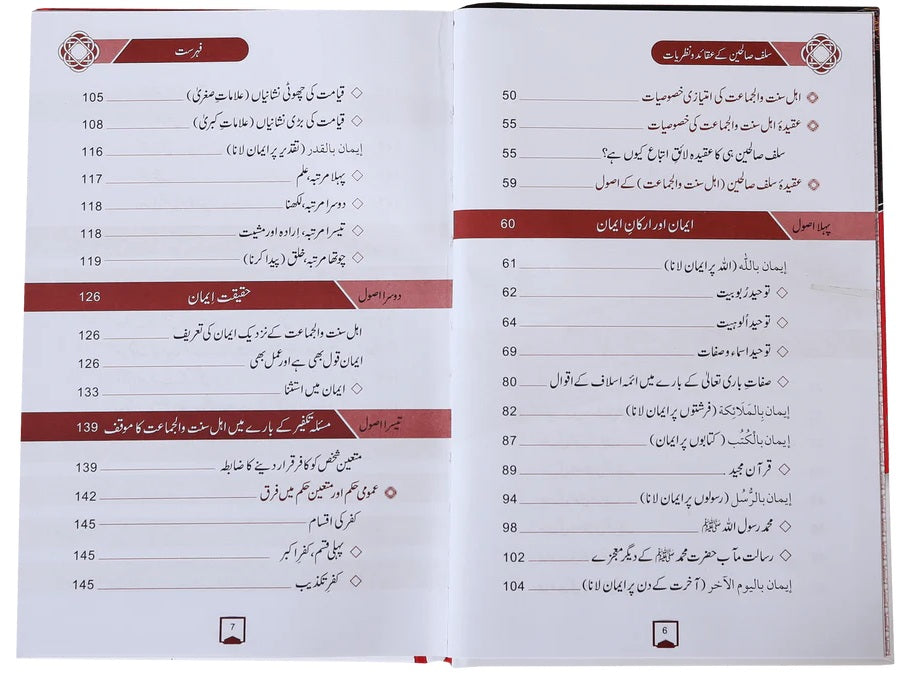 سلف صالحین کے عقائد و نظریات
اہل سنت والجماعت کی امتیازی خصوصیات 50
عقیدۂ اہل سنت والجماعت کی خصوصیات 55
سلف صالحین ہی کا عقیدہ لائقِ اتباع کیوں ہے؟ 55
عقیدۂ سلف صالحین (اہل سنت والجماعت) کے اصول 59
پہلا اصول ایمان اور ارکانِ ایمان 60
إیمان باللّٰه (اللہ پر ایمان لانا) 61
توحید رُبوبیت 62
توحید اُلوہیت 64
توحید اسماء و صفات 69
صفاتِ باری تعالیٰ کے بارے میں ائمہ اسلاف کے اقوال 80
إیمان بِالمَلَائِكة (فرشتوں پر ایمان لانا) 82
إیمان بالْكُتُب (کتابوں پر ایمان) 87
قرآن مجید 89
إیمان بالرُّسُل (رسولوں پر ایمان لانا) 94
محمد رسول اللہ ﷺ 98
رسالت مآب حضرت محمد ﷺ کے دیگر معجزے 102
إیمان بالیوم الآخر (آخرت کے دن پر ایمان لانا) 104
6
فہرست
قیامت کی چھوٹی نشانیاں (علاماتِ صغریٰ) 105
قیامت کی بڑی نشانیاں (علاماتِ کبریٰ) 108
إیمان بالقدر (تقدیر پر ایمان لانا) 116
پہلا مرتبہ، علم 117
دوسرا مرتبہ، لکھنا 118
تیسرا مرتبہ، اِرادہ اور مشیت 118
چوتھا مرتبہ، خلق (پیدا کرنا) 119
دوسرا اصول حقیقت اِیمان 126
اہل سنت والجماعت کے نزدیک ایمان کی تعریف 126
ایمان قول بھی ہے اور عمل بھی 126
ایمان میں استثنا 133
تیسرا اصول مسئلہ تکفیر کے بارے میں اہل سنت والجماعت کا موقف 139
متعین شخص کو کافر قرار دینے کا ضابطہ 139
عمومی حکم اور متعین حکم میں فرق 142
کفر کی اقسام 145
پہلی قسم، کفرِ اکبر 145
کفرِ تکذیب 145
7